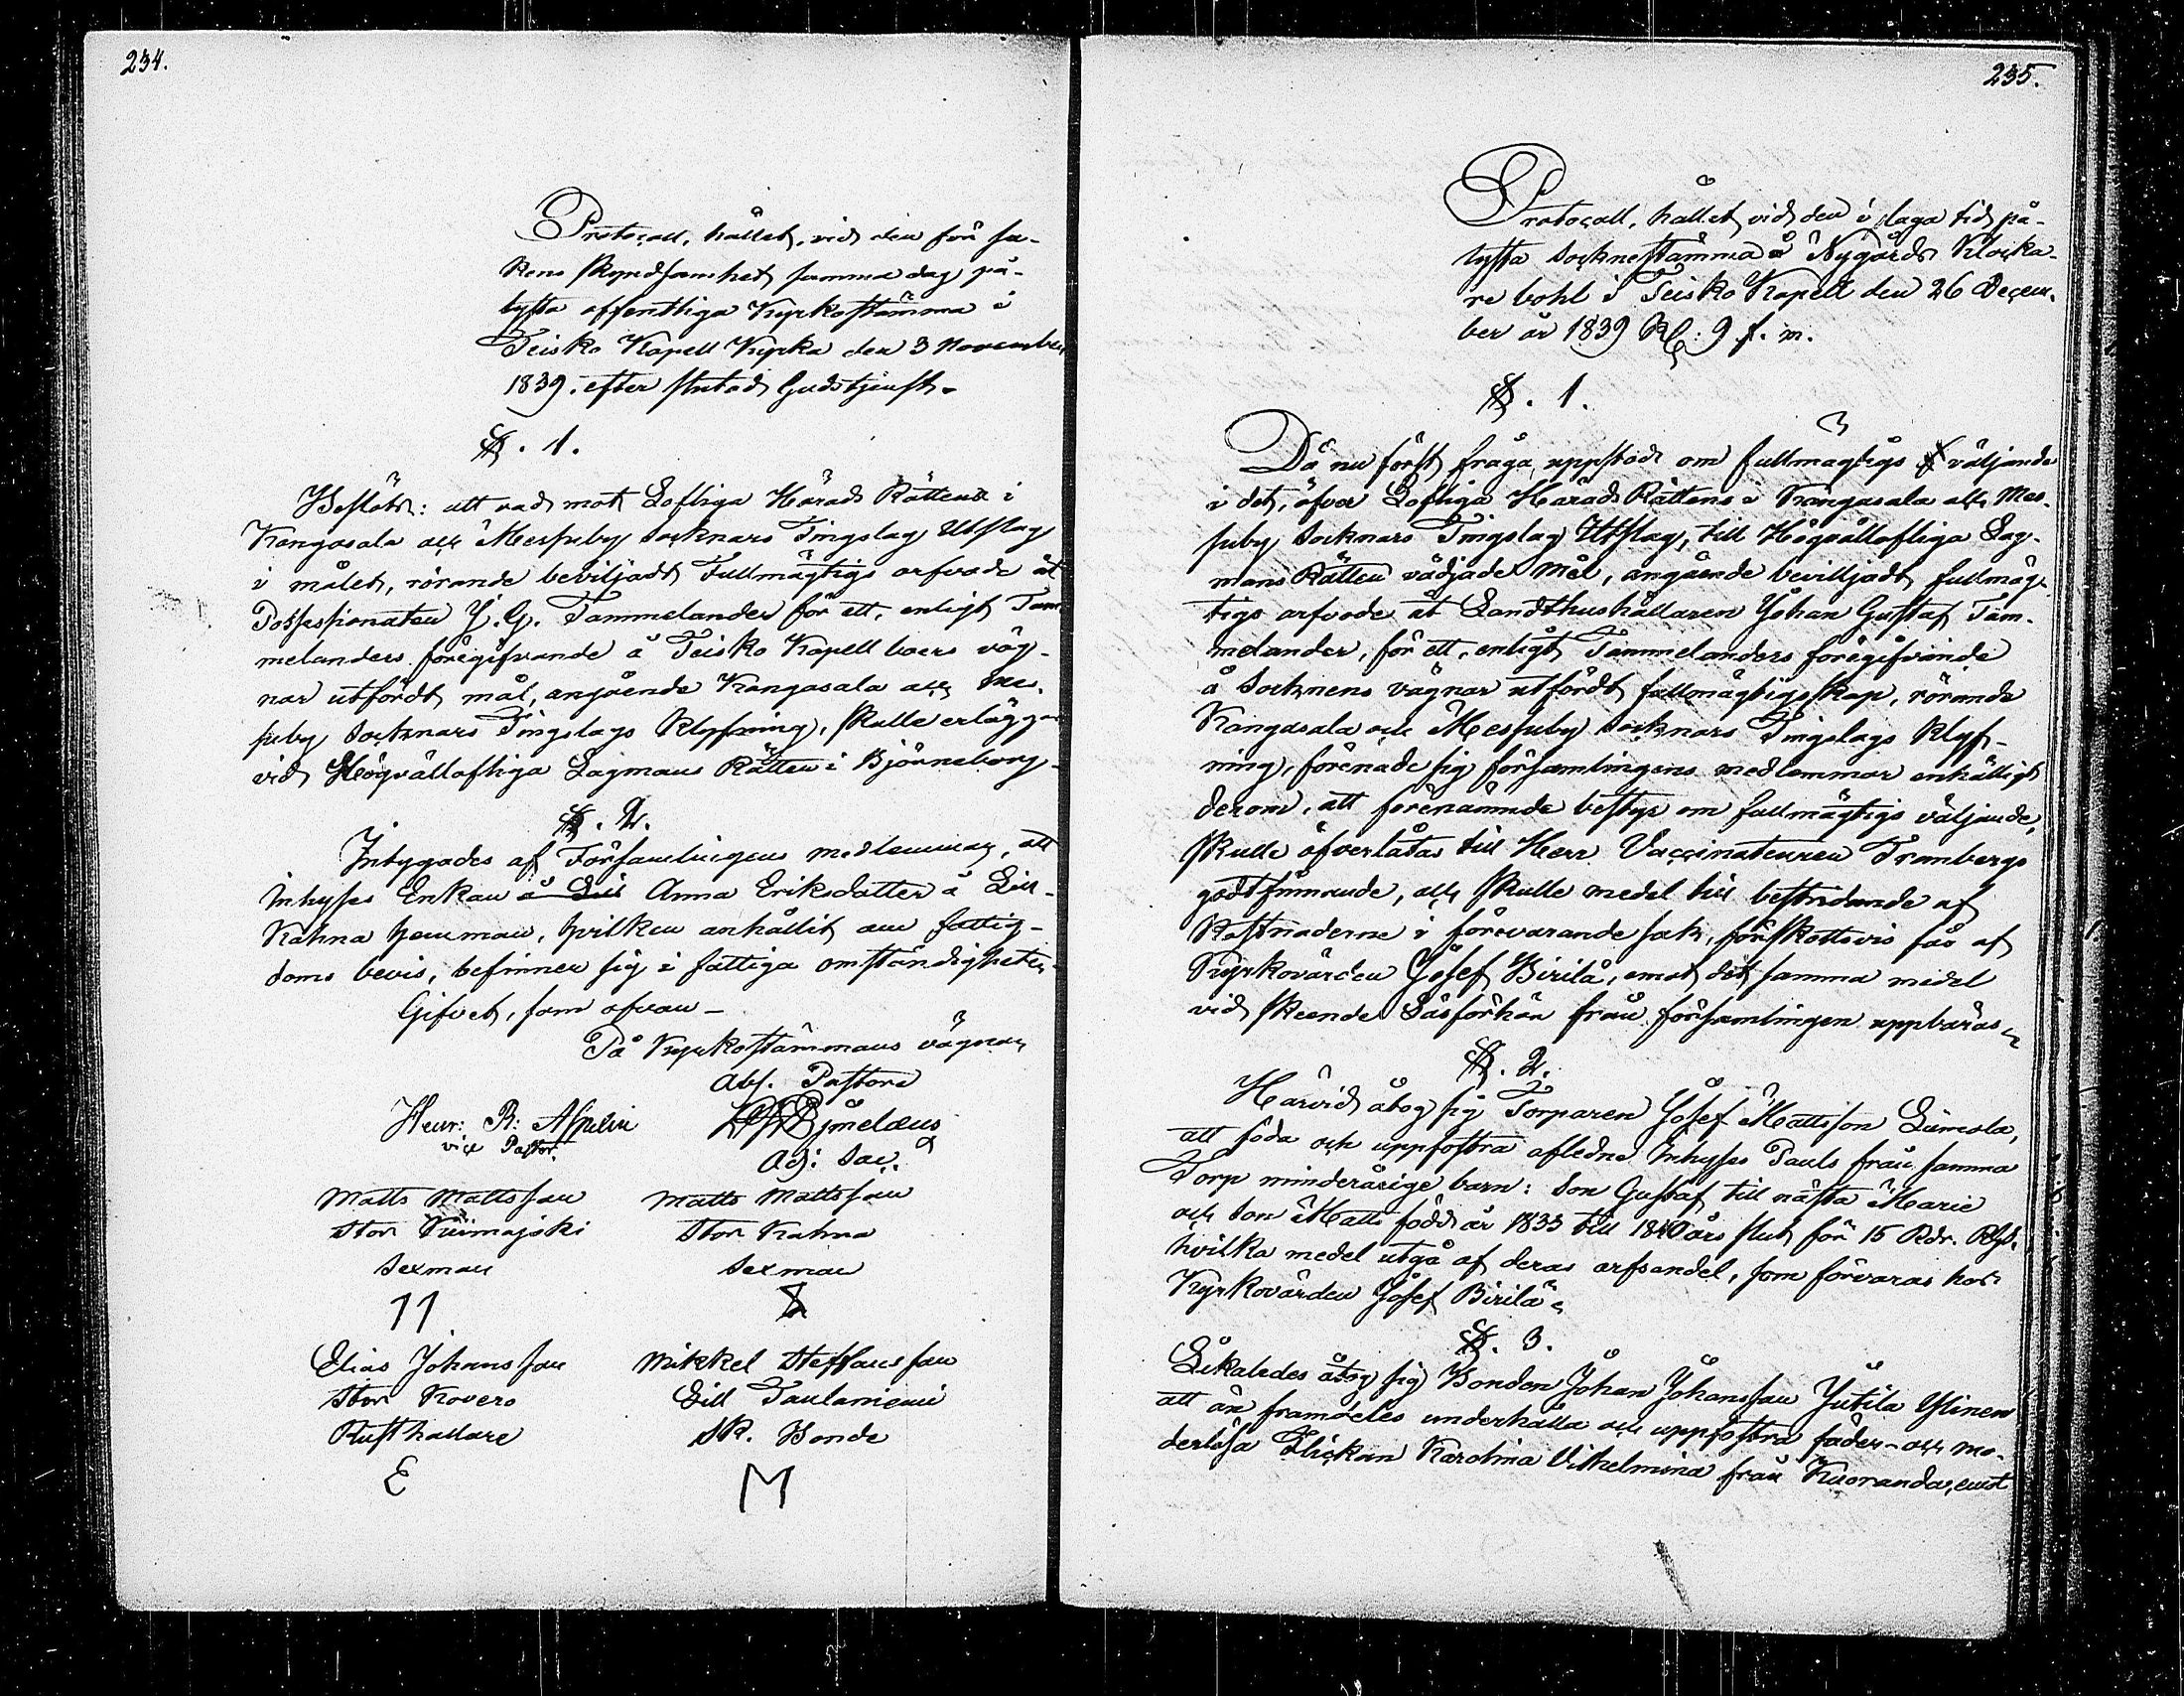 234.
Protocall, hållet, vid den för sa-
kens skyndsamhet samma dag på-
lysta offentliga Kyrkostämma i
Teisko Kapell Kyrka den 3 November
1839. efter slutad Gudstjenst.
§. 1.
Beslöts: att vad mot Lofliga Härads Rättens i
Kangasala och Messuby Socknars Tingslag Utslag
i målet, rörande beviljadt Fullmägtigs arfvode åt
Possessionaten J. G. Tammelander för ett, enligt Tam-
melanders föregifvande å Teisko Kapell boers väg-
nar utfördt mål, angående Kangasala och Mes-
suby Socknars Tingslags klyfning, skulle erläggas
vid Högvällofliga Lagmans Rätten i Björneborg.
§. 2.
Intygades af Församlingens medlemmar, att
Inhyses Enkan å Lill Anna Eriksdotter å Lill-
Kahna hemman, hvilken anhållit om fattig-
doms bevis, befinner sig i fattiga omständigheter.
Gifvet, som ofvan –
På Kyrkostämmans vägnar
Abs. Pastore
Henr: R: Aspelin
vice Pastor.
Björnelæus
Adj: Sac:
Matts Mattsson
Stor Kuimajöki
Sexman
11
Matts Mattsson
Stor Kahna
Sexman
Elias Johansson
Stor Kovero
Rusthållare
E
Mikkel Steffansson
Lill Taulaniemi
SK. Bonde
M
235.
Protocall, hållet vid den i laga tid på-
lysta Socknestämma å Nygårds Klocka-
re bohl i Teisko Kapell den 26 Decem-
ber år 1839 Kl: 9 f. m.
§. 1.
Då nu först fråga uppstod om fullmägtigs väljande
i det, öfver Lofliga Härads Rättens i Kangasala och Mes-
suby Socknars Tingslag Utslag, till Högvällofliga Lag-
mans Rätten vädjade mål, angående bevilljadt fullmäg-
tigs arfvode åt Landthushållaren Johan Gustaf Tam-
melander, för ett, enligt Tammelanders föregifvande
å Socknens vägnar utfördt fullmägtigskap, rörande
Kangasala och Messuby Socknars Tingslags klyf-
ning, förenade sig församlingens medlemmar enhälligt
derom, att förenämnde bestyr om fullmägtigs väljande,
skulle öfverlåtas till Herr Vaccinateuren Trambergs
godtfinnande, och skulle medel till bestridande af
Kostnaderne i förevarande sak, förskottsvis fås af
Kyrkovärden Josef Birilä, emot det samma medel
vid skeende Läsförhör från församlingen uppbäras.
§. 2.
Härvid åtog sig Torparen Josef Mattsson Liimola,
att föda och uppfostra aflednе Inhyses Pauls från samma
Torp minderårige barn: Son Gustaf till nästa Marie
och Son Matts född år 1835 till 1840 års slut för 15 Rdr. Rgs.
hvilka medel utgå af deras arfsandel, som förvaras hos
Kyrkovärden Josef Birilä.
§. 3.
Likaledes åtog sig Bonden Johan Johansson Jutila Ylinen
att än framdeles underhålla och uppfostra fader- och mo-
derlösa Flickan Karolina Vilhelmina från Kuoranda, emot